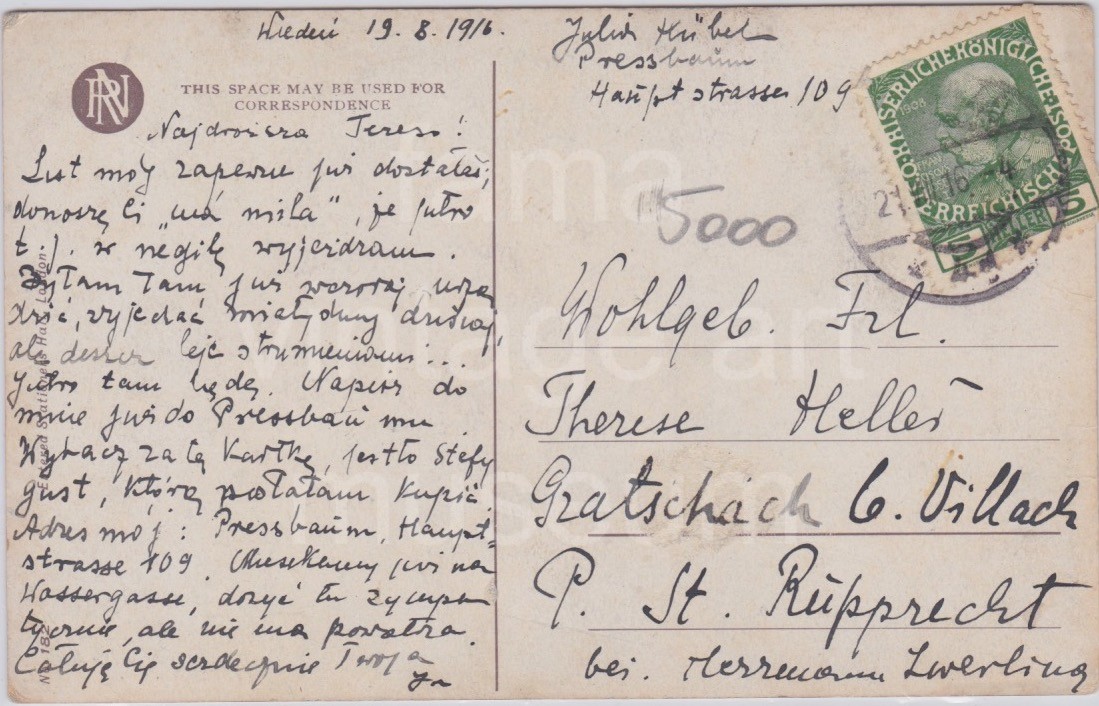 Wiedeń 19.8.1916.
Julia Hübel
Pressbaum
Hauptstrasse 109
RN
THIS SPACE MAY BE USED FOR
CORRESPONDENCE
Najdroższa Tereso!
List mój zapewne już dostałaś,
donoszę Ci „ma miła", że jutro
t.j. w niedzielę wyjeżdżam.
Byłam tam już wczoraj
wyjechać miałyśmy dzisiaj,
ale deszcz leje strumieniami...
Jutro tam będę. Napisz do
mnie już do Pressbaumu
Wybacz za tę kartkę, jest to Stefy
gust, którą posłałam kupić.
Adres mój: Pressbaum, Haupt-
strasse 109. Mieszkamy już na
Wassergasse, dosyć tu sympa
tycznie, ale nie ma powietrza.
Całuję Cię serdecznie Twoja
5000
KAISERLICHE KÖNIGLICHE ÖSTERREICHISCHE POST
1908
HELLER 5
16 - 4
Wohlgeb. Frl.
Therese Heller
Gratschach b. Villach
P. St. Rupprecht
bei Herrmann Zwerling
Entered Stationers' Hall, London
No 182
fama
vintage art
museum